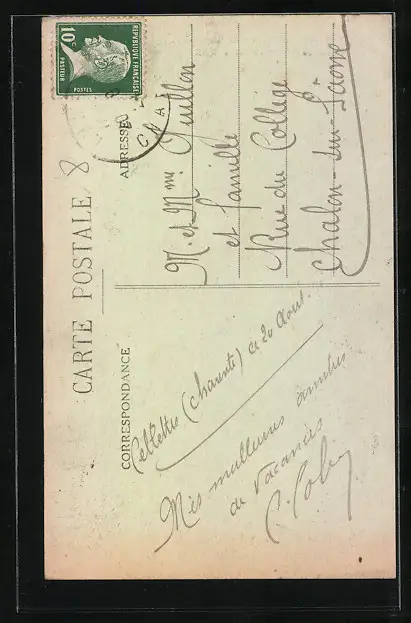 CARTE POSTALE 8
CORRESPONDANCE
Cellettes (Charente) ce 20 Aout.
Mes meilleures amitiés
de Vacances
ADRESSE
M. et Mme
et famille
Rue du Collège
Chalon-sur-Saone
REPUBLIQUE FRANÇAISE
10c
PASTEUR
POSTES
CHA